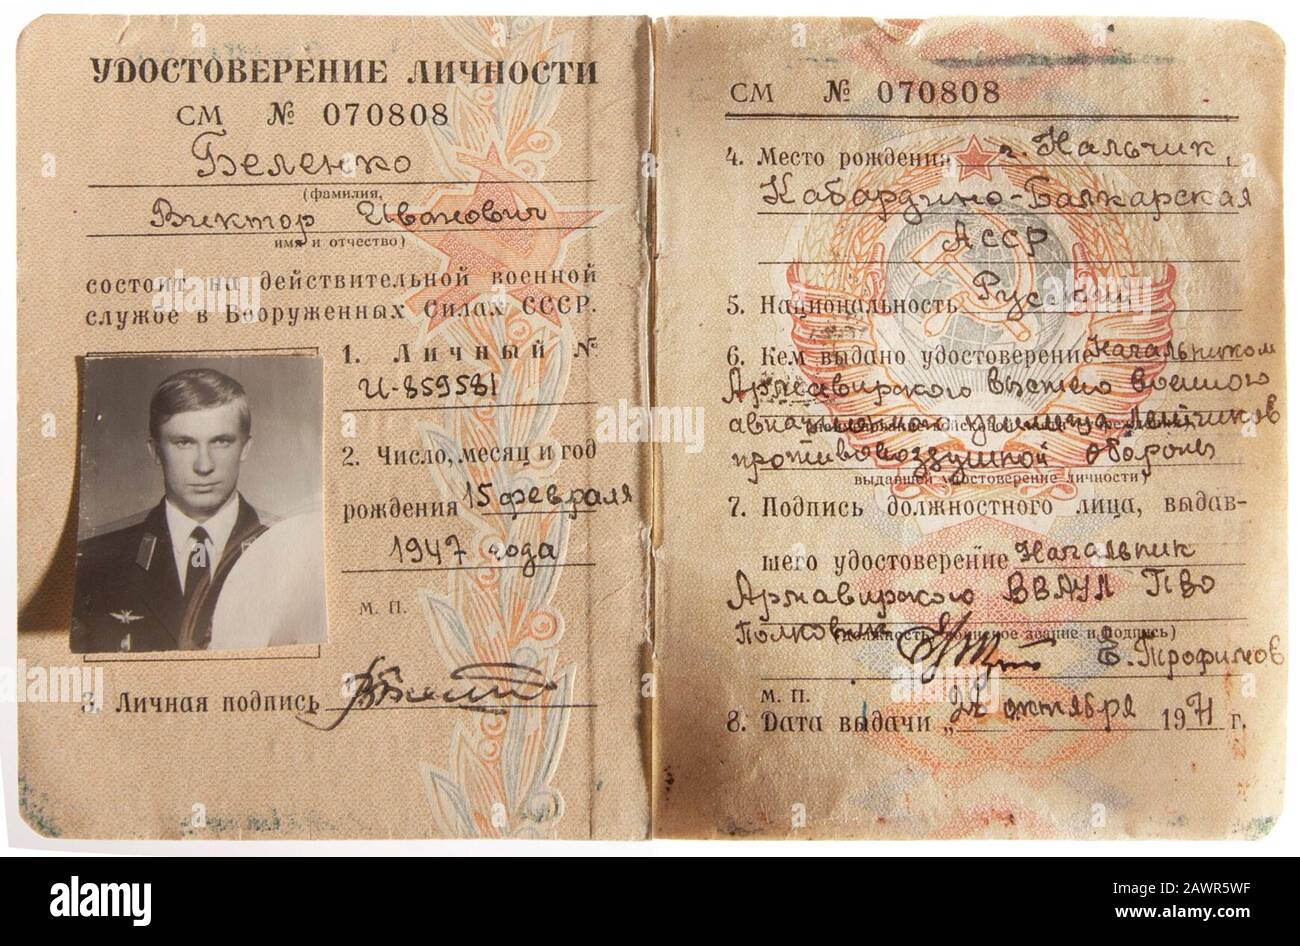 УДОСТОВЕРЕНИЕ ЛИЧНОСТИ
СМ № 070808
Беленко
(фамилия,
Виктор Иванович
имя и отчество)
состоит на действительной военной
службе в Вооруженных Силах СССР.
1. Личный №
И-859581
2. Число, месяц и год
рождения 15 февраля
1947 года
М. П.
3. Личная подпись
СМ № 070808
4. Место рождения г. Нальчик,
Кабардино-Балкарская
АССР
5. Национальность Русский
6. Кем выдано удостоверение Начальником
Армавирского высшего военного
авиационного училища летчиков
противовоздушной обороны
выдавшей удостоверение личности)
7. Подпись должностного лица, выдав-
шего удостоверение Начальник
Армавирского ВВАУЛ ПВО
Полковник (должность, воинское звание и подпись)
Е. Трофимов
М. П.
8. Дата выдачи „22 октября 1971 г.
alamy
Image ID: 2AWR5WF
www.alamy.com